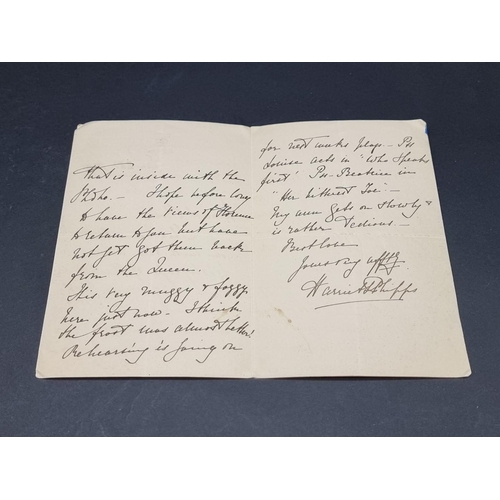 that is inside with the
Photo. I hope before long
to have the Views of Florence
to return to you but have
not yet got them back
from the Queen.
It is very muggy & foggy
here just now. I think
the frost was almost better!
Rehearsing is going on
for next weeks plays – Pss
Louise acts in "Who Speaks
first" Pss Beatrice in
"Her bitterest Foe" –
My arm gets on slowly &
is rather tedious –
Best love
Yours very affly
Harriet Phipps